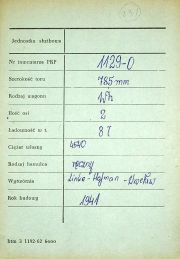 Jednostka służbowa
Nr inwentarza PKP 1129-0
Szerokość toru 785 mm
Rodzaj wagonu Wh
Ilość osi 2
Ładowność w t. 8 T
Ciężar własny 4540
Rodzaj hamulca ręczny
Wytwórnia Linke-Hofman-Wrocław
Rok budowy 1941